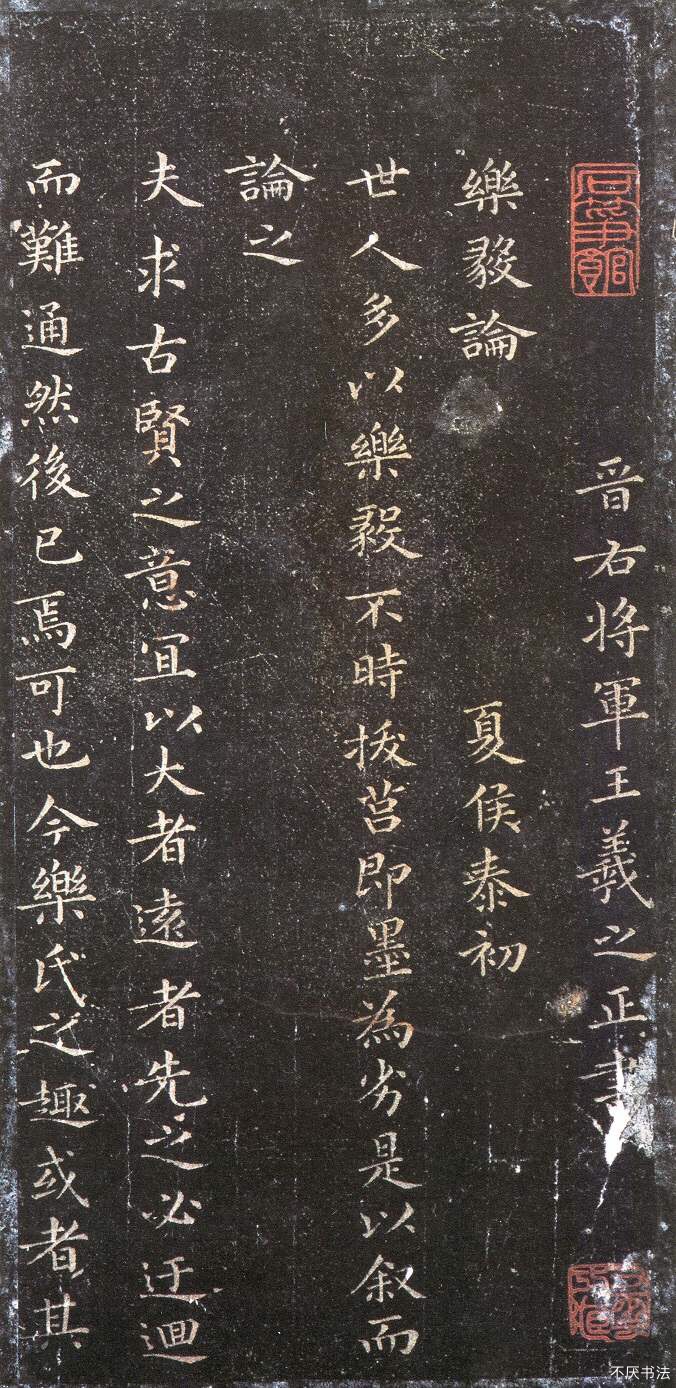 晋右将軍王羲之正書
樂毅論
夏侯泰初
世人多以樂毅不時拔莒即墨為劣是以叙而
論之
夫求古賢之意宜以大者遠者先之必迂迴
而難通然後已焉可也今樂氏之趣或者其
不厌书法